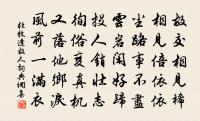 故交相見稀
相見倍依依
塵路事不盡
雲岩閑好歸
投人銷壯志
徇俗變真機
又落他鄉淚
風前一滿衣
杜牧逢故人詞典網